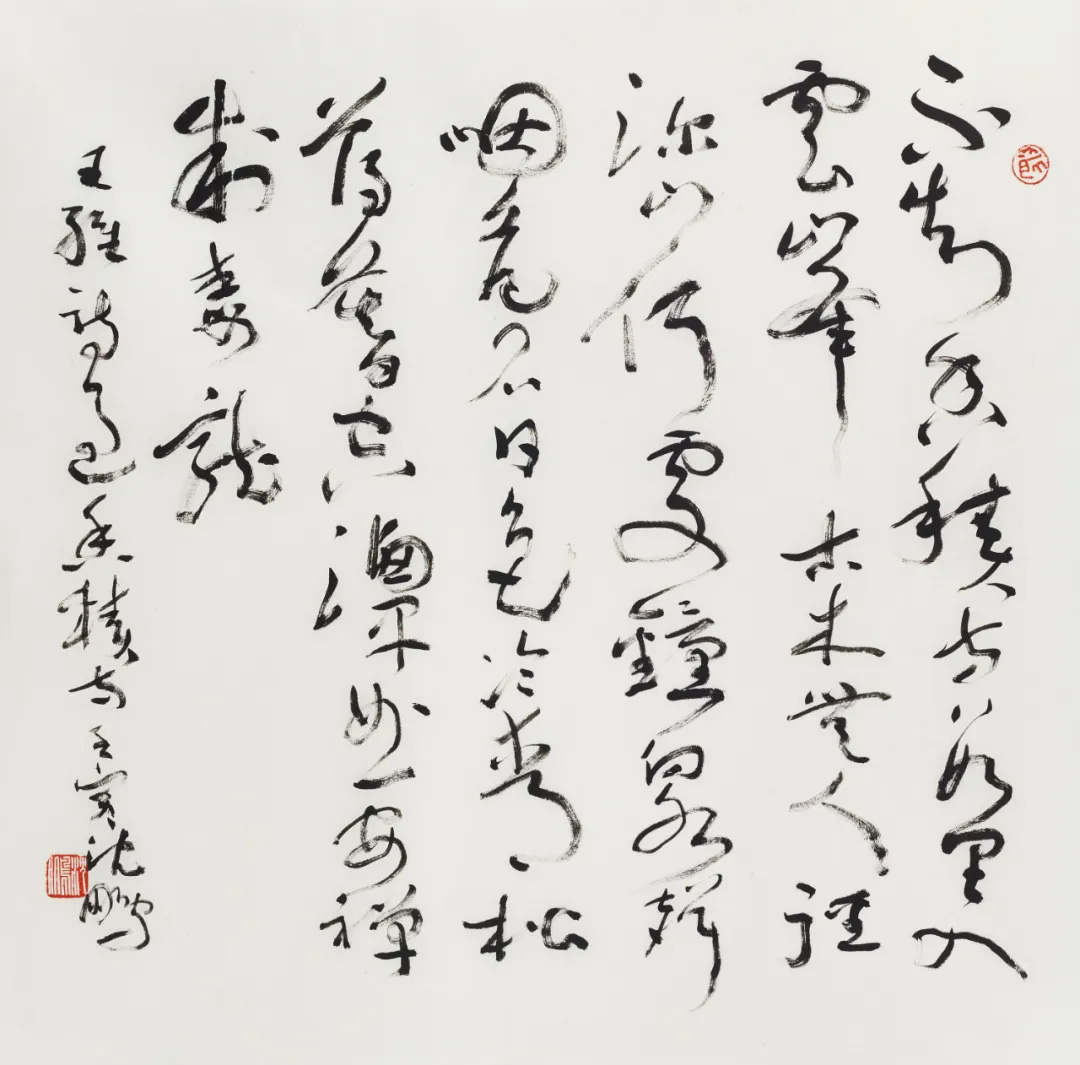 不知香積寺數里入
雲峯古木無人徑
深山何處鐘泉聲
咽危石日色冷青松
薄暮空潭曲安禪
制毒龍
王維詩過香積寺壬寅沈鵬
沈鵬